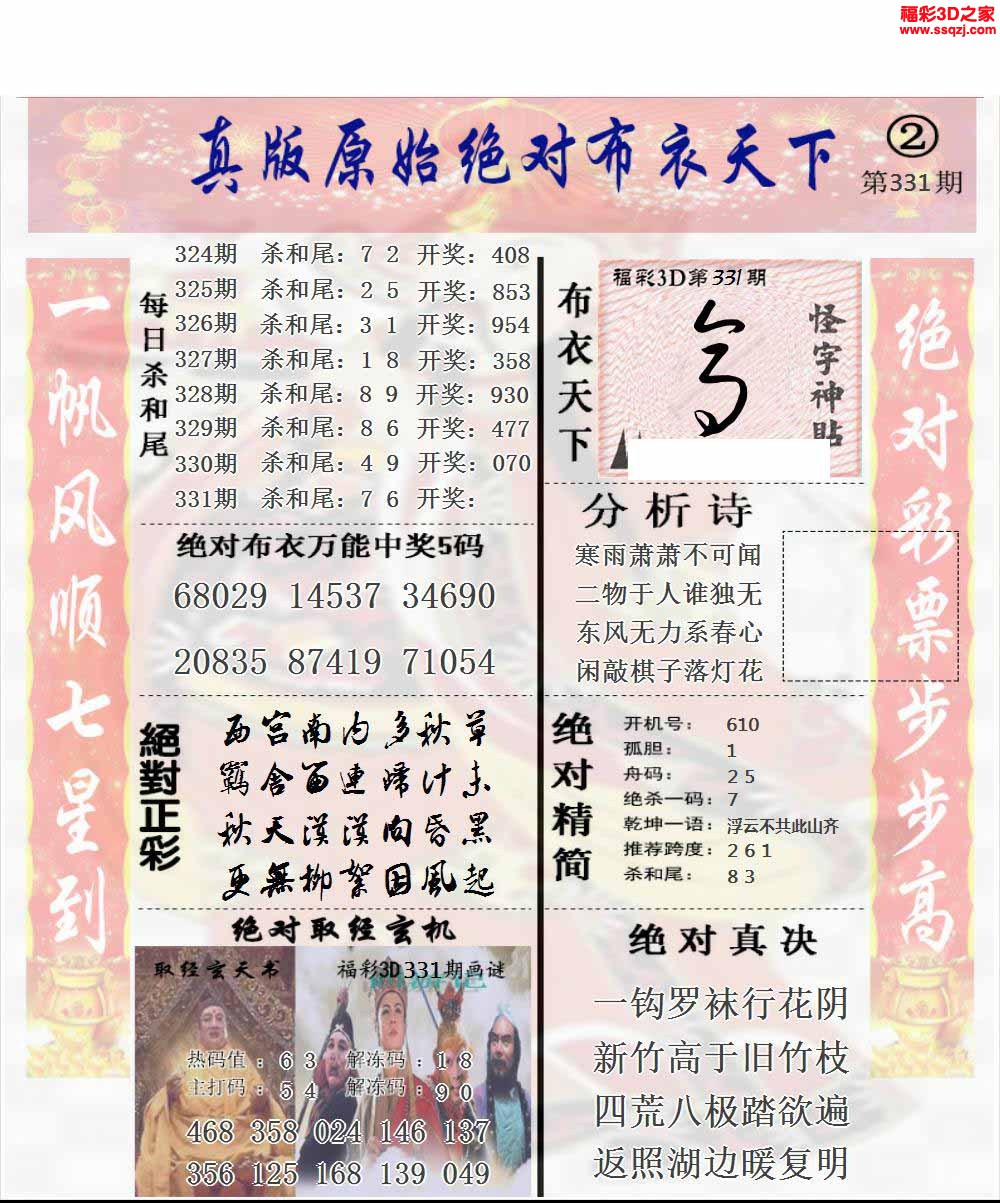 福彩3D之家
www.ssqzj.com
真版原始绝对布衣天下
②
第331期
一帆风顺七星到
每日杀和尾
324期 杀和尾：7 2 开奖：408
325期 杀和尾：2 5 开奖：853
326期 杀和尾：3 1 开奖：954
327期 杀和尾：1 8 开奖：358
328期 杀和尾：8 9 开奖：930
329期 杀和尾：8 6 开奖：477
330期 杀和尾：4 9 开奖：070
331期 杀和尾：7 6 开奖：
绝对布衣万能中奖5码
68029 14537 34690
20835 87419 71054
絕對正彩
西宫南内多秋草
羁舍留連歸计未
秋天漠漠向昏黑
更無柳絮因風起
绝对取经玄机
取经玄天书
福彩3D331期画谜
热码值：6 3 解冻码：1 8
主打码：5 4 解冻码：9 0
468 358 024 146 137
356 125 168 139 049
布衣天下
福彩3D第331期
怪字神貼
分析诗
寒雨萧萧不可闻
二物于人谁独无
东风无力系春心
闲敲棋子落灯花
绝对精简
开机号：610
孤胆：1
舟码：2 5
绝杀一码：7
乾坤一语：浮云不共此山齐
推荐跨度：2 6 1
杀和尾：8 3
绝对真决
一钩罗袜行花阴
新竹高于旧竹枝
四荒八极踏欲遍
返照湖边暖复明
绝对彩票步步高